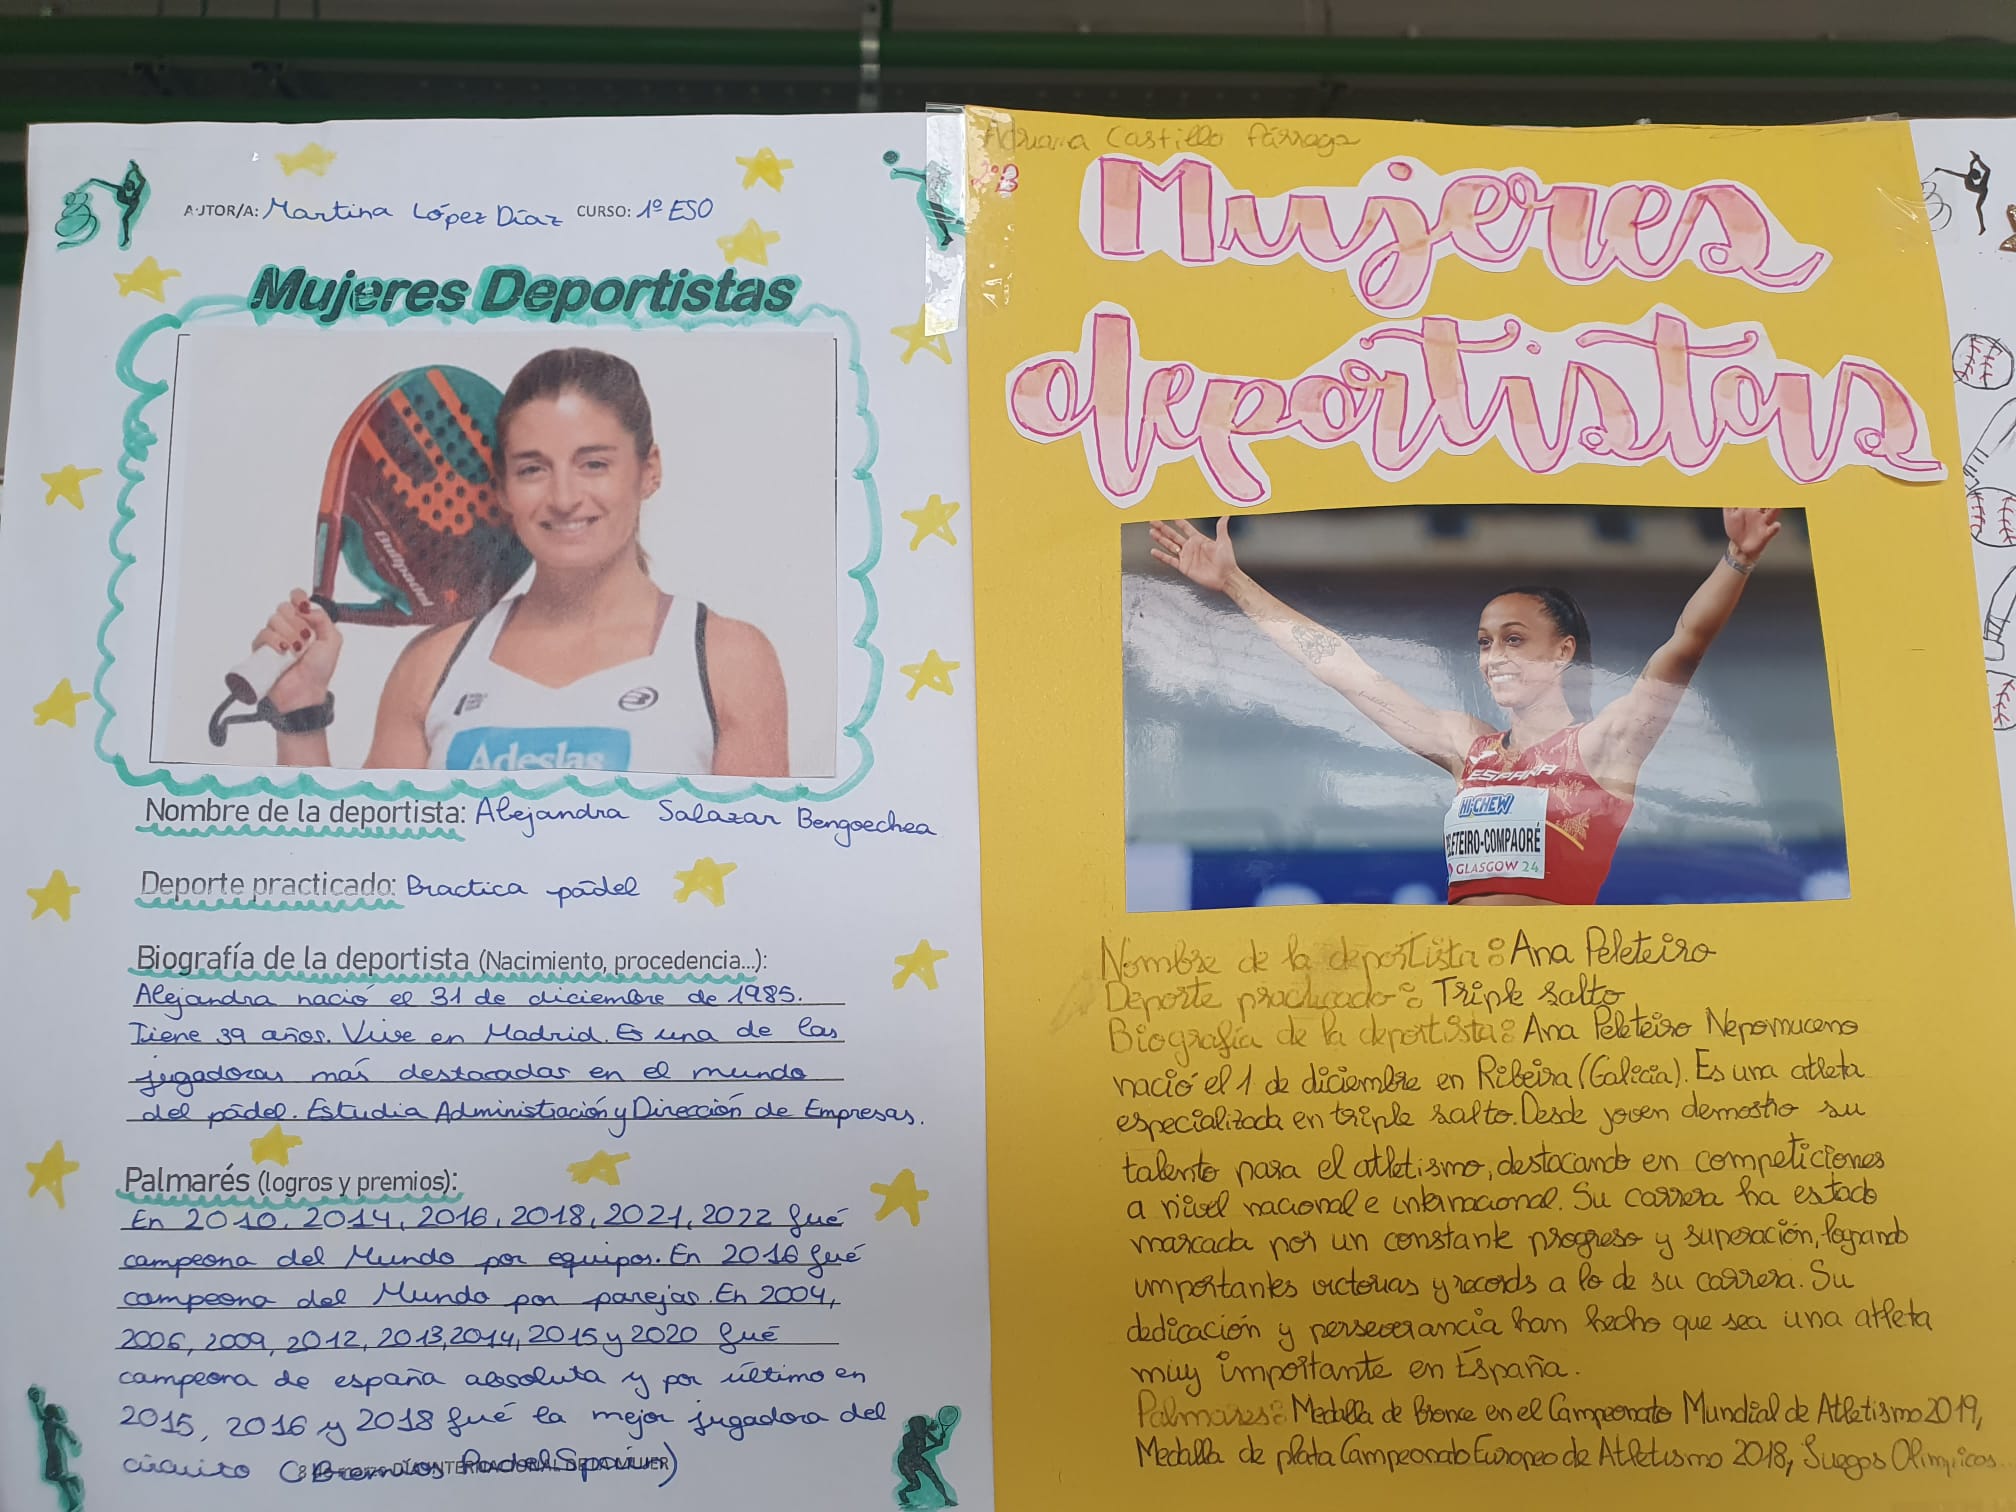 AUTOR/A: Martina López Díaz CURSO: 1º ESO
Mujeres Deportistas
Bullpadel
Adeslas
Nombre de la deportista: Alejandra Salazar Bengoechea
Deporte practicado: Practica pádel
Biografía de la deportista (Nacimiento, procedencia...):
Alejandra nació el 31 de diciembre de 1985.
Tiene 39 años. Vive en Madrid. Es una de las
jugadoras más destacadas en el mundo
del pádel. Estudia Administración y Dirección de Empresas.
Palmarés (logros y premios):
En 2010, 2014, 2016, 2018, 2021, 2022 fué
campeona del Mundo por equipos. En 2016 fué
campeona del Mundo por parejas. En 2004,
2006, 2009, 2012, 2013, 2014, 2015 y 2020 fué
campeona de españa absoluta y por último en
2015, 2016 y 2018 fué la mejor jugadora del
circuito (Premios Padel Spain)
8 DÍA INTERNACIONAL DE LA MUJER
Adriana Castillo Párraga
Mujeres
deportistas
ESPAÑA
HI-CHEW
PELETEIRO-COMPAORÉ
GLASGOW 24
Nombre de la deportista: Ana Peleteiro
Deporte practicado: Triple salto
Biografía de la deportista: Ana Peleteiro Nepomuceno
nació el 1 de diciembre en Ribeira (Galicia). Es una atleta
especializada en triple salto. Desde joven demostro su
talento para el atletismo, destacando en competiciones
a nivel nacional e internacional. Su carrera ha estado
marcada por un constante progreso y superación, logrando
importantes victorias y records a lo de su carrera. Su
dedicación y perseverancia han hecho que sea una atleta
muy importante en España.
Palmares: Medalla de Bronce en el Campeonato Mundial de Atletismo 2019,
Medalla de plata Campeonato Europeo de Atletismo 2018, Juegos Olimpicos...